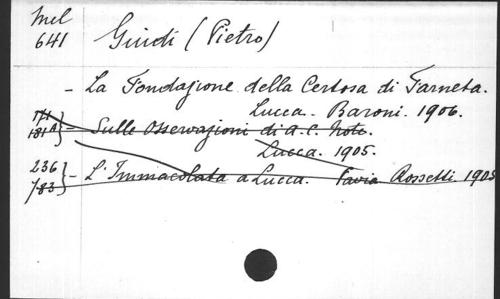 Mel
641
Guidi (Pietro)
- La Fondazione della Certosa di Farneta.
Lucca. Baroni. 1906.
171
181 A } - Sulle Osservazioni di A. C. Note.
Lucca. 1905.
236
783 } - L'Immacolata a Lucca. Pavia Rossetti 1905